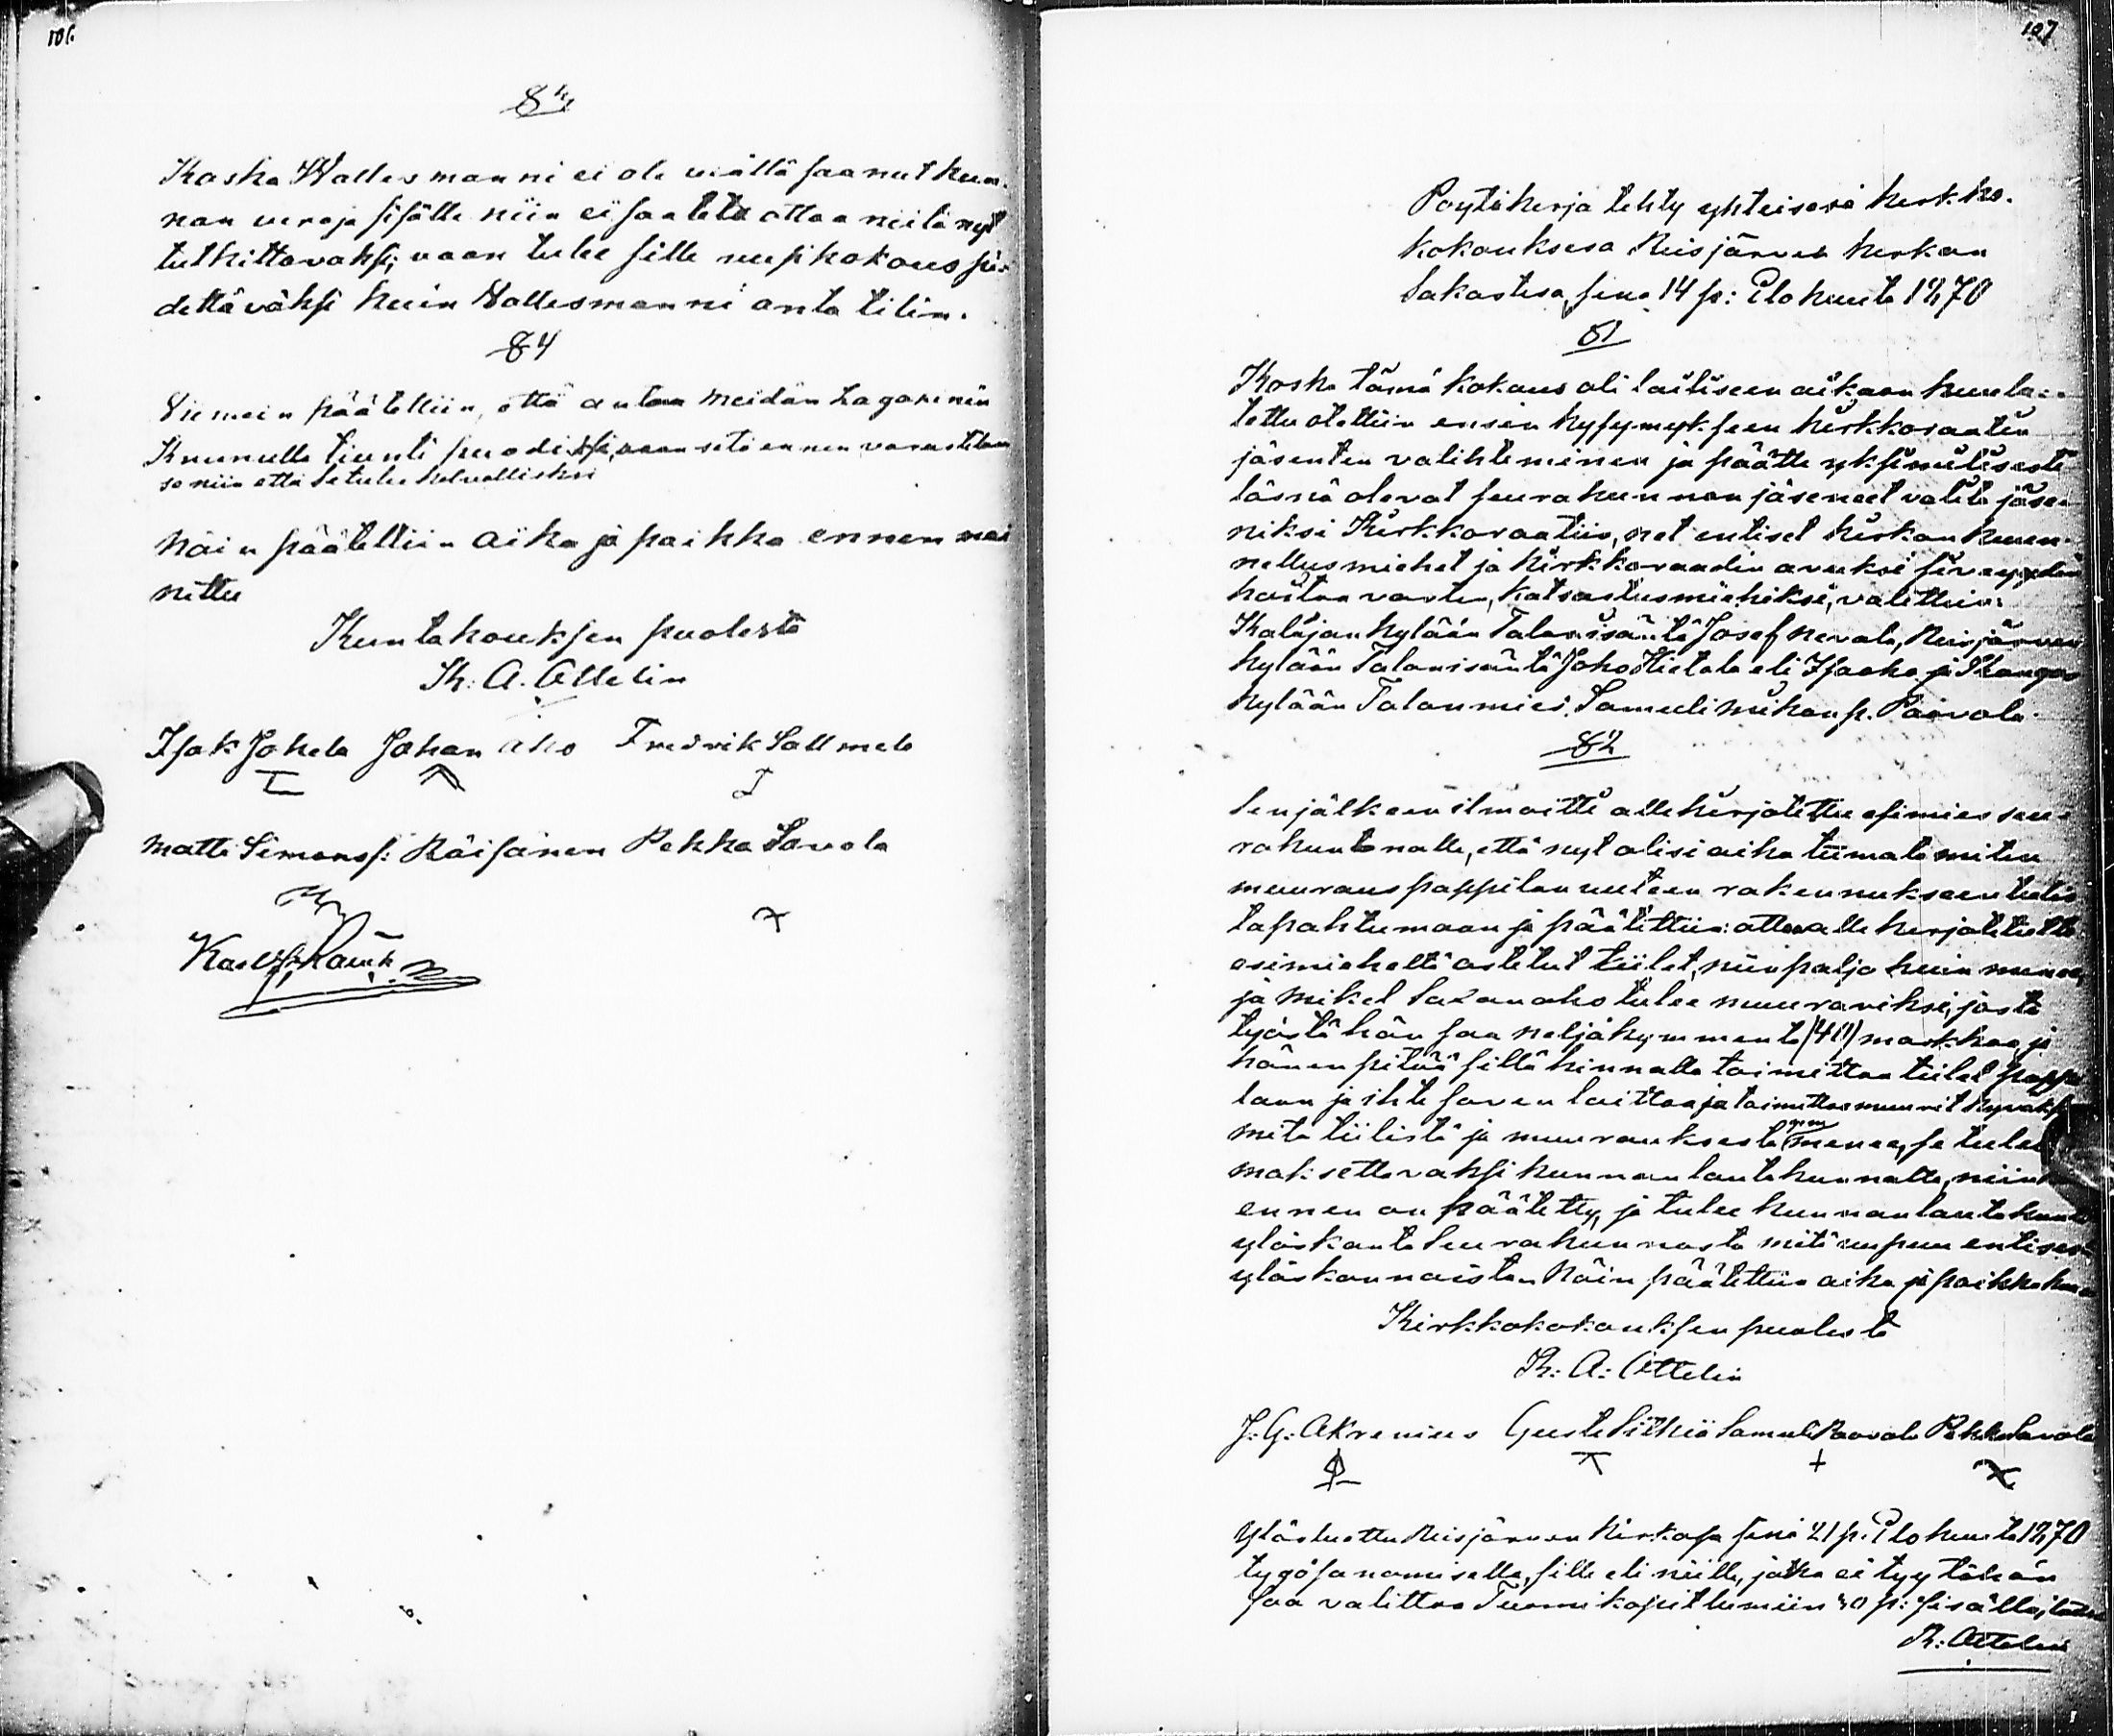 106.
§ 3
Koska Wallesmanni ei ole wiällä saanut kun-
nan weroja sisälle niin ei saateta ottaa niitä nyt
tutkittavaksi; vaan tulee sille uusi kokous pi-
dettäväksi kuin Wallesmanni anta tilin.
§ 4
Viimein päätettiin, että antaa meidän Lagarinin
Kruunulle tiunti puodiksi, vaan sitä ennen varustetaan
se niin että se tulee kelvolliseksi
Näin päätettiin aika ja paikka ennen mai
nittu
Kuntakouksen puolesta
K. A. Ottelin
Isak Jokela Johan Aho Fredrik Sallmela
Matti Simonsp: Räisänen Pekka Savola
107
Poytäkirja tehty yhteisesä kirkko-
kokouksesa Reisjärven kirkon
Sakastisa, sinä 14 p: Elokuuta 1870
§1
Koska tämä kokous oli lailiseen aikaan kuulu-
tettu otettiin ensin kysymykseen kirkkoraatin
jäsenten valihteminen ja päätti yksimielisesti
läsnä olevat seurakunnan jäseneet valita jäse-
niksi Kirkkoraatiin, net entiset kirkon kuuen-
nellusmiehet ja kirkkoraadin avuksi siveyden
hoitoa varten, katsastusmiehiksi, valittiin:
Kalajan kylään Talonisäntä Josef Nevala, Reisjärven
kylään Talonisäntä Joho Hietala eli Isaaka ja Kangas
kylään Talonmies Samuli Mikonp. Paavola.
§2
Sen jälkeen ilmoitti allekirjotettu esimies seu-
rakuntanalle, että nyt olisi aika tiimata miten
muuraus pappilan uuteen rakennukseen tulis
tapahtumaan ja päätettiin: ottaa alle kirjotetulta
esimieheltä ostetut tiilet, niin paljo kuin menee,
ja Mikel Savanaho tulee muuraviksi, josta
työstä hän saa neljäkymmentä (40) markkaa ja
hänen pitää sillä hinnalla toimittaa tiilet pappi
laan ja ihte saven laittaa ja toimittaa muurit hyväksi
mitä tiilistä ja muurauksesta menee, se tulee
maksettavaksi kunnan lautakunnalta, niin
ennen on päätetty, ja tulee kunnanlautakunta
ylöskanta Seurakunnasta mitä uupuu entises
ylöskannoista. Näin päätettiin aika ja paikka kuin
Kirkkokokouksen puolesta
K: A: Ottelin
J: G: Akrenius Gusta Pitkä Samuli Paavola Pekka Savola
Ylösluettu Reisjärven Kirkosa sinä 21 p. Elokuuta 1870
tygösanomisella, sille eli niille, jotka ei tyy tähän
saa valittaa Tuomikapitlumiin 30 p: sisällä,
K: Ottelin